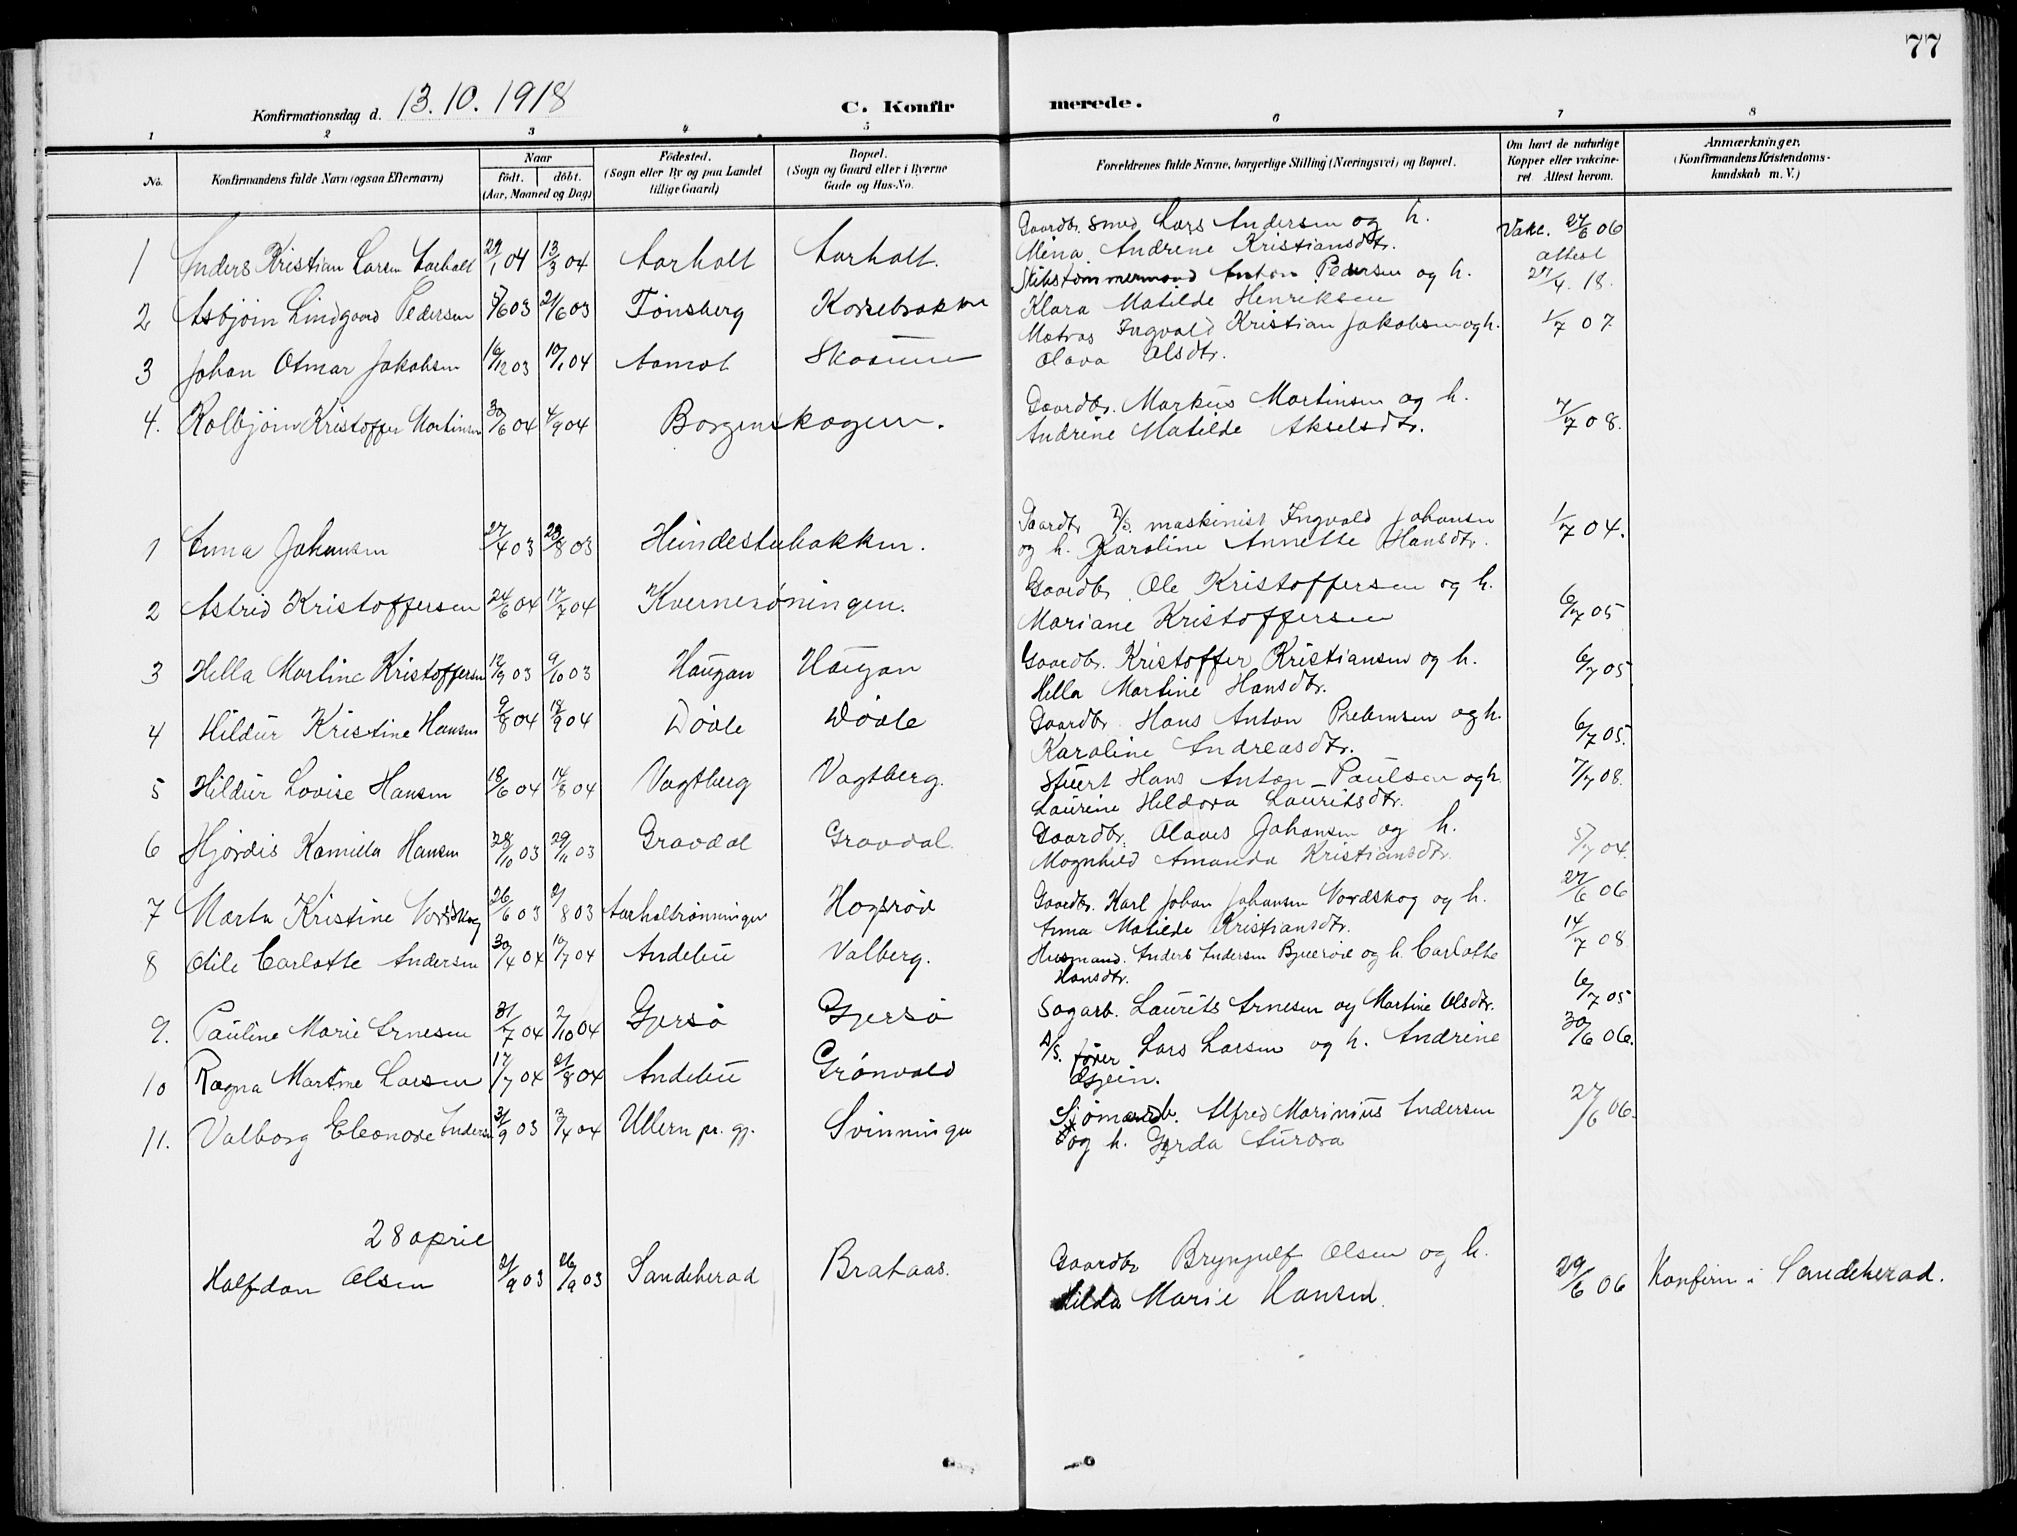 77
Konfirmationsdag d. 13.10.1918 C. Konfir merede.
1 2 3 4 5 6 7 8
No. Konfirmandens fulde Navn (ogsaa Efternavn) Naar født. døbt. (Aar, Maaned og Dag) Fødested. (Sogn eller By og paa Landet tillige Gaard) Bopæl. (Sogn og Gaard eller i Byerne Gade og Hus-No. Forældrenes fulde Navne, borgerlige Stilling (Næringsvei) og Bopæl. Om havt de naturlige Kopper eller vakcineret. Attest herom. Anmærkninger. (Konfirmandens Kristendomskundskab m. V.)
1 Anders Kristian Larsen Aarholt 29/1 04 13/3 04 Aarholt Aarholt. Gaardbr. smed Lars Andersen og h. Vakc. 27/6 06
Mina Andrene Kristiansdtr. attest
2 Asbjørn Lindgaard Pedersen 5/6 03 21/6 03 Tønsberg Skibstømmermand Anton Pedersen og h. 27/4. 18.
Klara Matilde Henriksen
3 Johan Otmar Jakobsen 16/12 03 17/1 04 Aamot Skaoune Matros Ingvald Kristian Jakobsen og h. 1/7 07.
Olava Olsdtr.
4. Kolbjørn Kristoffer Martinsen 30/6 04 4/9 04 Borgenskogen. Gaardbr. Markus Martinsen og h. 7/7 08.
Andrine Matilde Akselsdtr.
1 Anna Johansen 27/4 03 23/8 03 Hundestubakken. Gaardbr D/S. maskinist Ingvald Johansen 1/7 04.
og h. Karoline Annette Hansdtr.
2 Astrid Kristoffersen 24/6 04 17/7 04 Kvernerøningen. Gaardbr. Ole Kristoffersen og h. 6/7 05
Mariane Kristoffersen
3 Hella Martine Kristoffersen 12/9 03 9/10 03 Haugan Haugan Gaardbr. Kristoffer Kristiansen og h. 6/7 05
Hella Martine Hansdtr.
4 Hildur Kristine Hansen 9/8 04 18/9 04 Døvle Døvle Gaardbr. Hans Anton Prebensen og h. 6/7 05.
Karoline Andreasdtr.
5 Hildur Lovise Hansen 18/6 04 14/8 04 Vagtberg Vagtberg. Stuert Hans Anton Paulsen og h. 7/7 08.
Laurine Heldora Lauritsdtr.
6 Hjørdis Kamilla Hansen 28/10 03 29/11 03 Gravdal Gravdal. Gaardbr. Olaves Johansen og h. 5/7 04.
Magnhild Amanda Kristiansdtr.
7 Marta Kristine Vordskog 26/6 03 2/8 03 Aarholtrønningen Hogsrød Gaardbr. Karl Johan Johansen Vordskog og h. 27/6 06
Anna Matilde Kristiansdtr.
8 Otile Carlotte Andersen 30/4 04 10/7 04 Andebu Valberg. Husmand. Anders Andersen Bjuerød og h. Carlotte 14/7 08
Hansdtr.
9. Pauline Marie Arnesen 31/7 04 2/10 04 Gjersø Gjersø Sagarb. Laurits Arnesen og Martine Olsdtr. 6/7 05
10 Ragna Martine Larsen 17/7 04 21/8 04 Andebu Grønvold D/S. fører Lars Larsen og h. Andrine 30/6 06.
11. Valborg Eleonore Andersen 31/9 03 3/4 04 Ullern pr. gj. Svinningen Sjømand. Alfred Marinius Andersen 27/6 06.
og h. Gerda Aurora
28 april
Halfdan Olsen 21/9 03 26/9 03 Sandeherad Brataas. Gaardbr Brynjulf Olsen og h. 29/6 06 Konfirm i Sandeherad.
Hilda Marie Hansen.